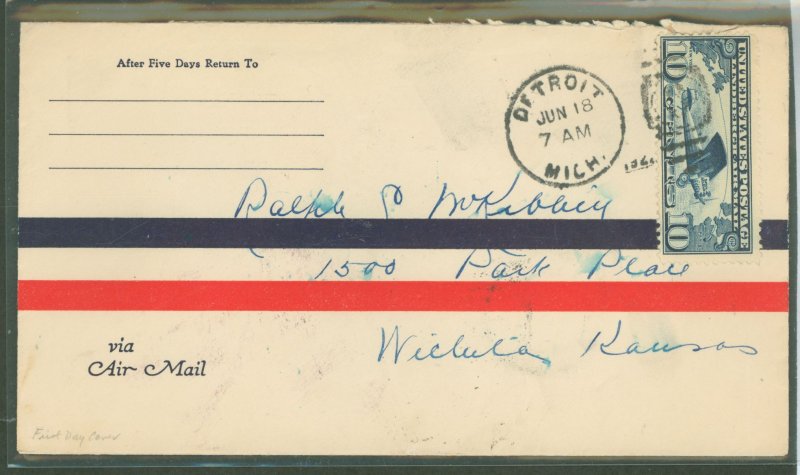 After Five Days Return To
DETROIT
JUN 18
7 AM
MICH.
UNITED STATES POSTAGE
10
10
Ralph P McKibbin
1500 Park Place
Wichita, Kansas
via
Air Mail
First Day Cover